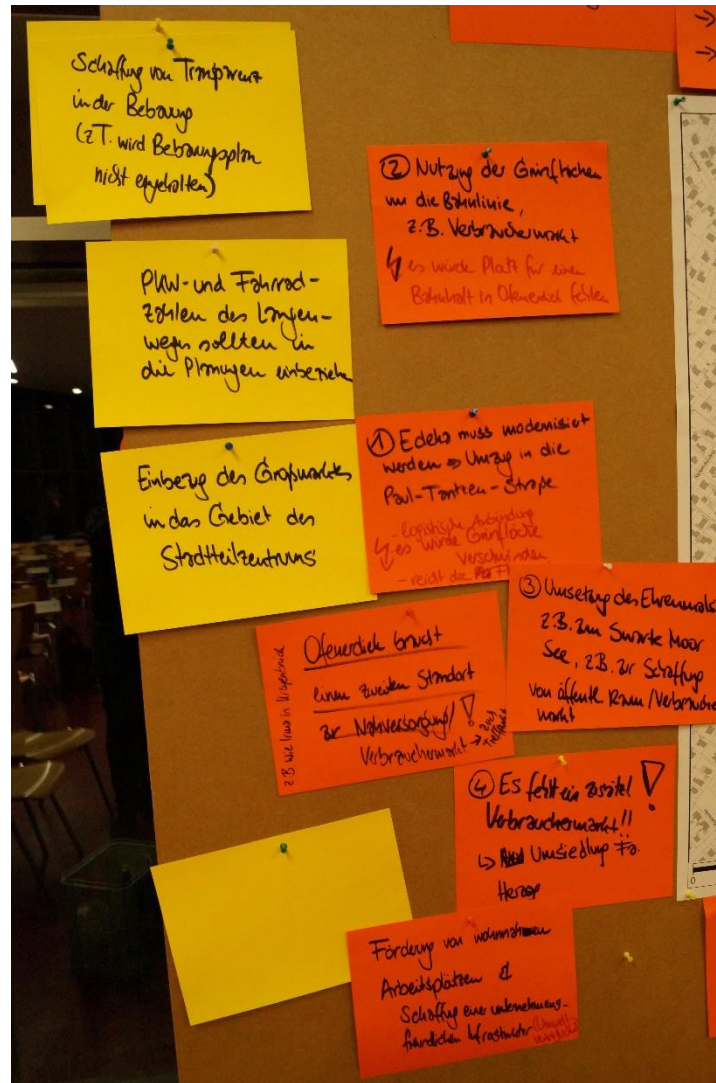 Schaffung von Transparenz
in der Bebauung
(z.T. wird Bebauungsplan
nicht eingehalten)
PKW- und Fahrrad-
zahlen des Langen-
weges sollten in
die Planungen einbeziehen
Einbezug des Großmarktes
in das Gebiet des
Stadtteilzentrums
② Nutzung der Grünflächen
um die Bahnlinie,
z.B. Verbrauchermarkt
↯ es würde Platz für einen
Bahnhalt in Ofenerdiek fehlen
① Edeka muss modernisiert
werden ⇒ Umzug in die
Paul-Tantzen-Straße
- logistische Anbindung
↯ - es würde Grünfläche
verschwinden
- reicht die
③ Umsetzung des Ehrenmals
z.B. zum Swarte Moor
See, z.B. zur Schaffung
von öffentl. Raum/Verbraucher
markt
z.B. wie in
Ofenerdiek braucht
einen zweiten Standort
zur Nahversorgung/!
Verbrauchermarkt → zus.
④ Es fehlt ein zusätzl !
Verbrauchermarkt!!
↳ Umsiedlung Fa.
Herzog
Förderung von wohnnahen
Arbeitsplätzen &
Schaffung einer unternehmens-
freundlichen Infrastruktur
0